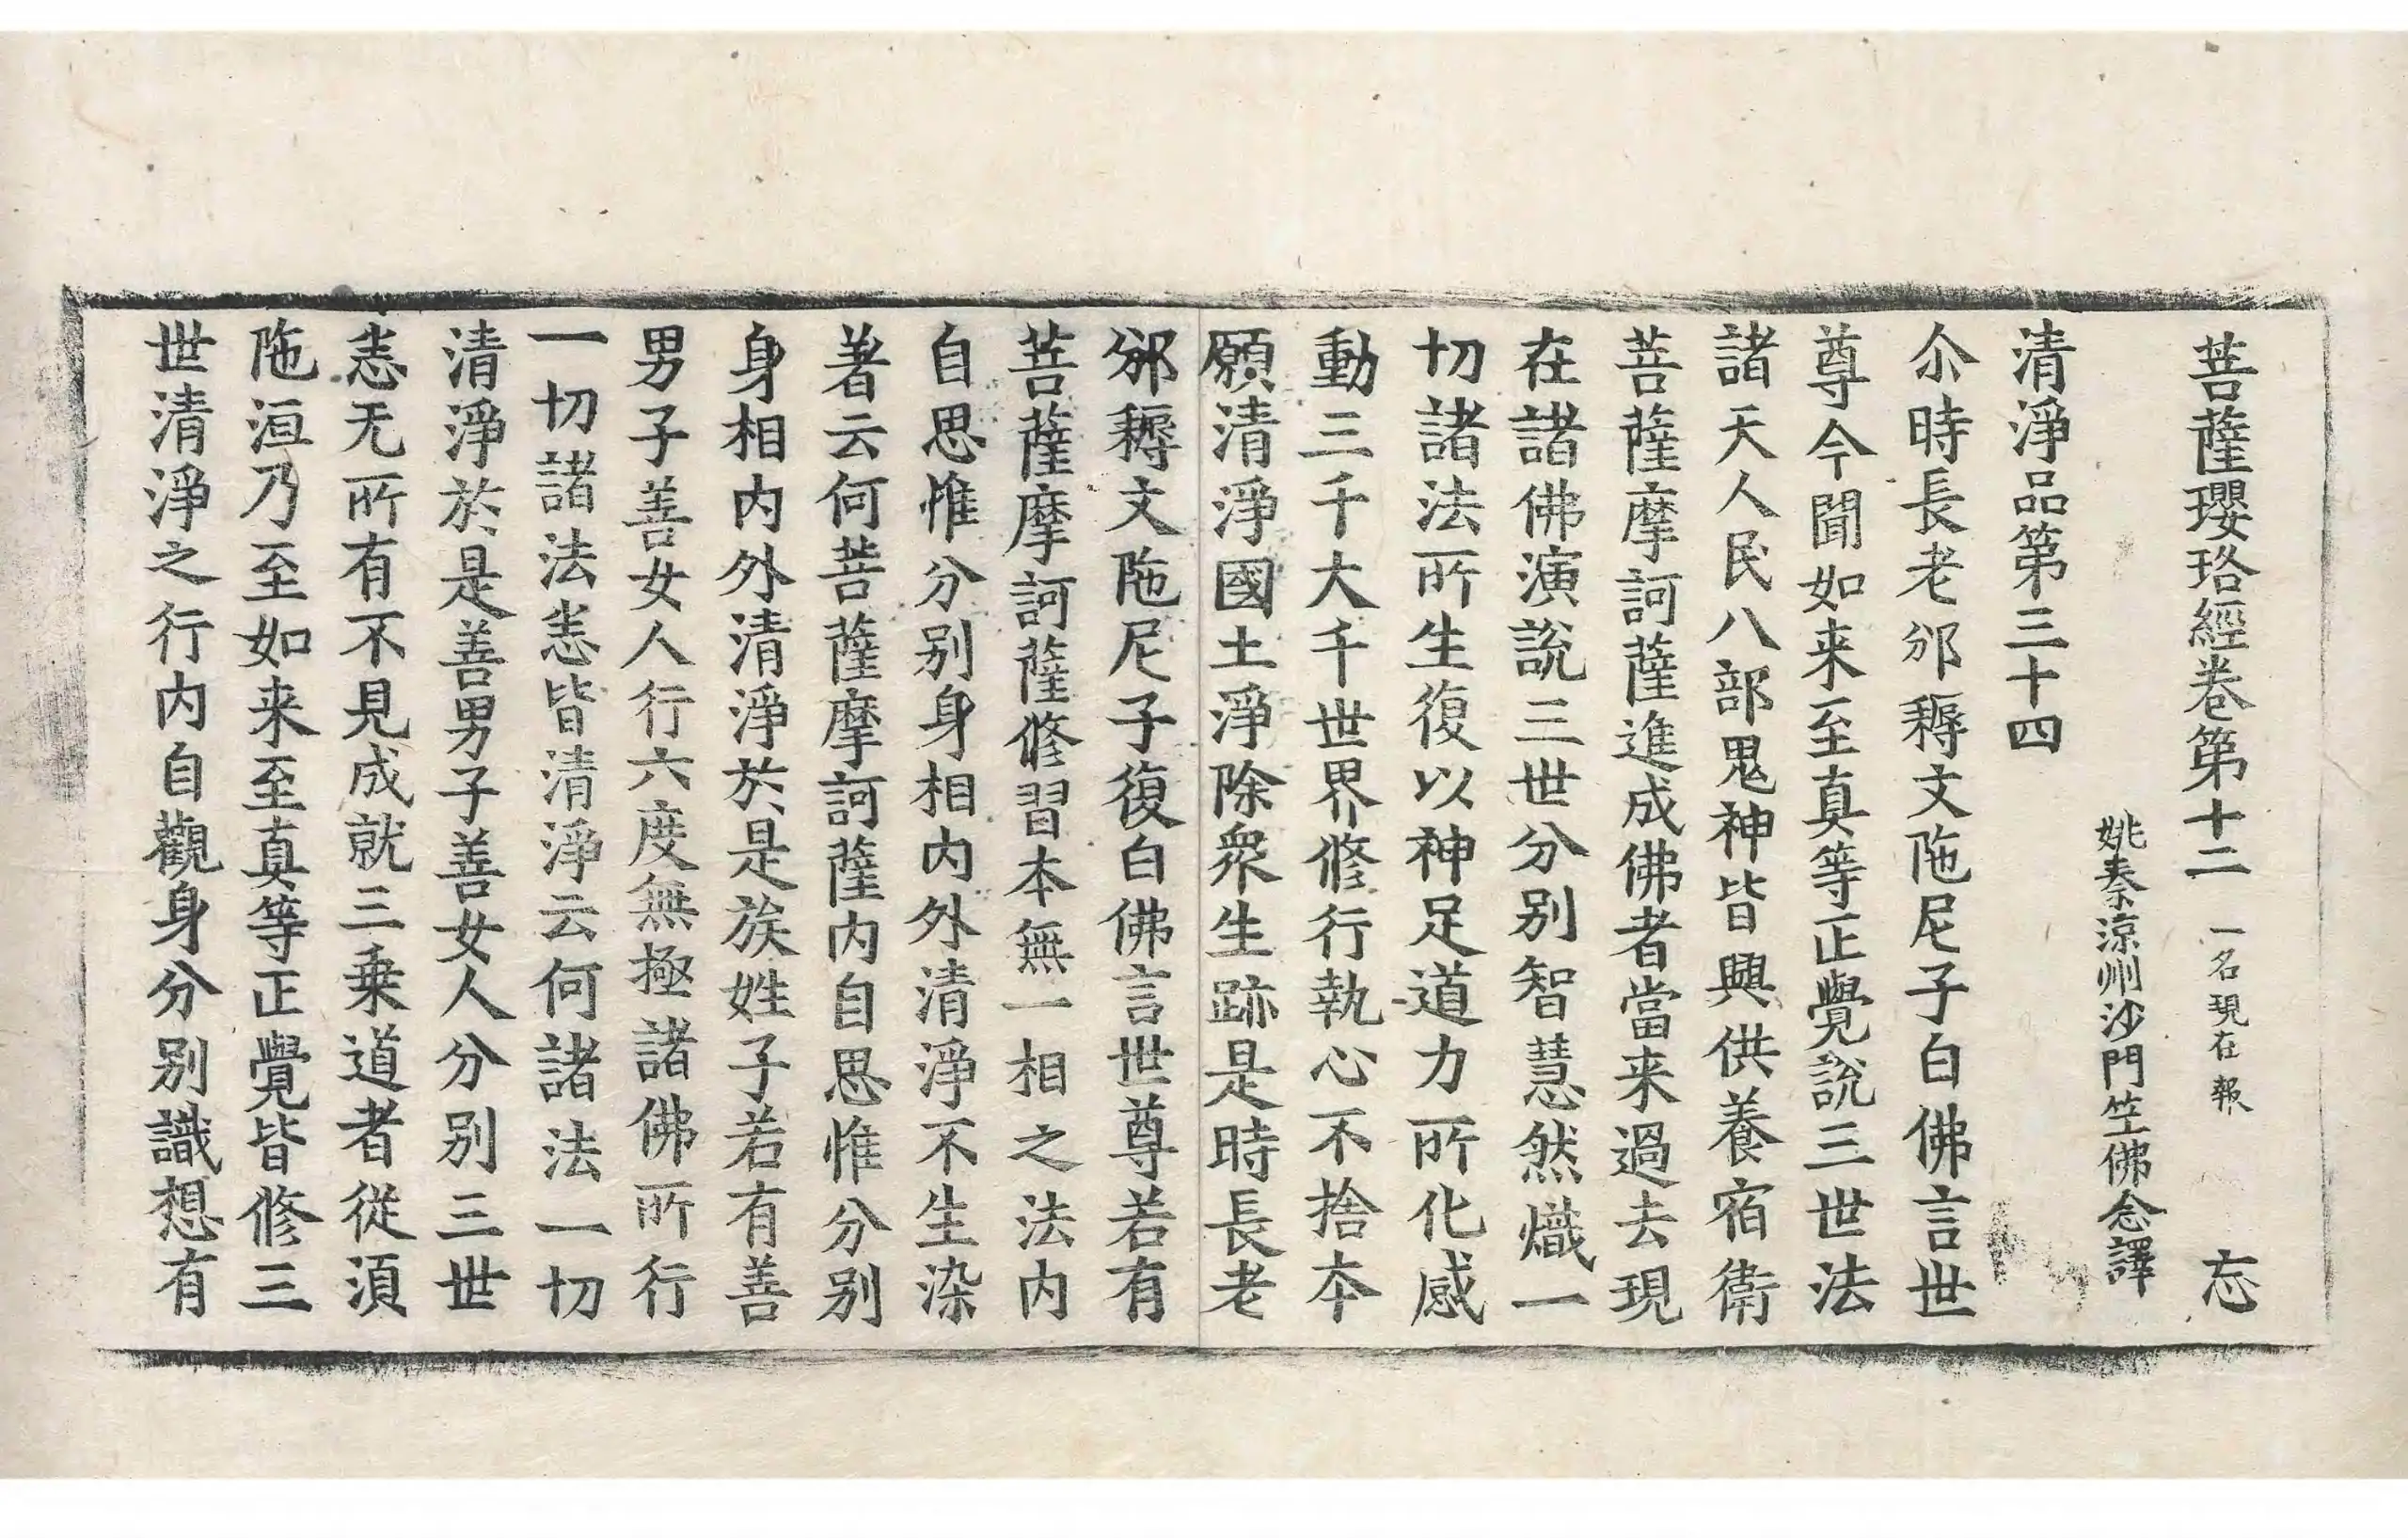 菩薩瓔珞經卷第十二 一名現在報 忘
姚秦涼州沙門竺佛念譯
清淨品第三十四
尒時長老邠耨文陁尼子白佛言世
尊今聞如来至真等正覺説三世法
諸天人民八部鬼神皆興供養宿衛
菩薩摩訶薩進成佛者當来過去現
在諸佛演説三世分别智慧然熾一
切諸法所生復以神足道力所化感
動三千大千世界修行執心不捨本
願清淨國土淨除衆生跡是時長老
邠耨文陁尼子復白佛言世尊若有
菩薩摩訶薩修習本無一相之法内
自思惟分别身相内外清淨不生染
著云何菩薩摩訶薩内自思惟分别
身相内外清淨於是族姓子若有善
男子善女人行六度無極諸佛所行
一切諸法恚皆清淨云何諸法一切
清淨於是善男子善女人分别三世
恚无所有不見成就三乗道者従湏
陁洹乃至如来至真等正覺皆修三
世清淨之行内自觀身分别識想有